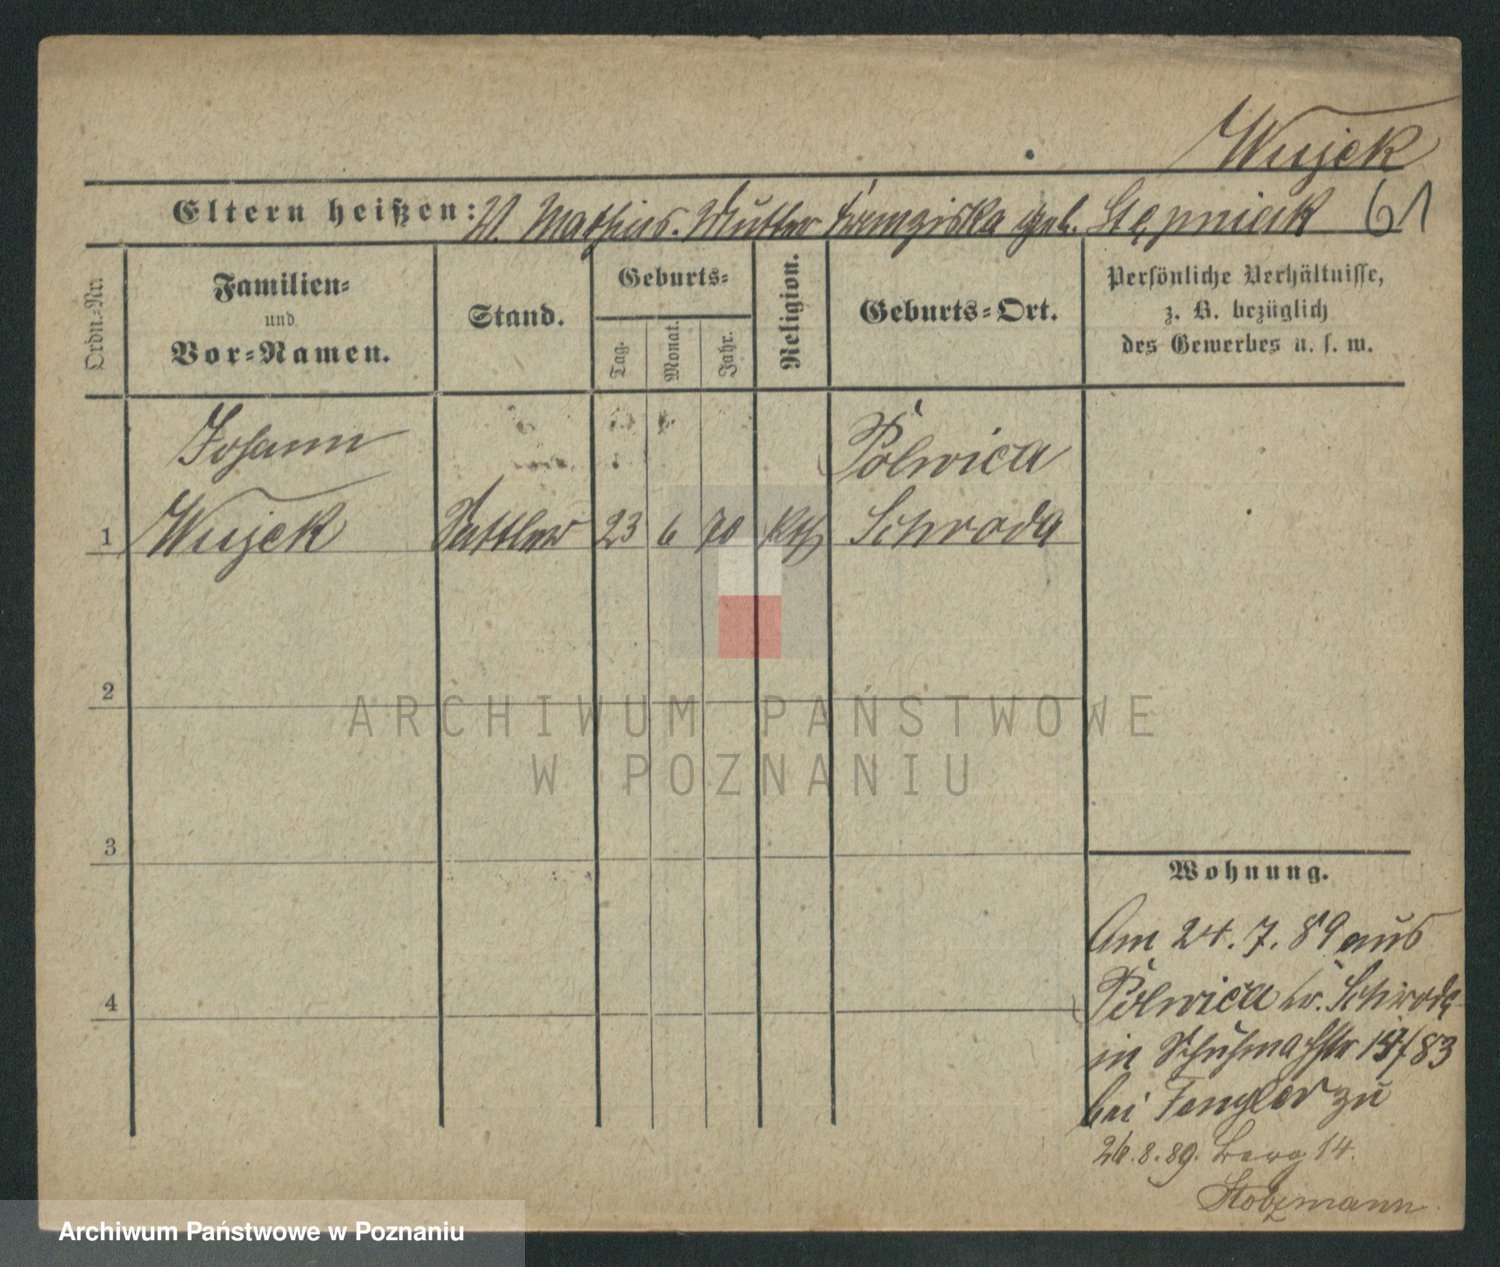 Wujek
61
Eltern heißen: V. Mathias. Mutter Franziska geb. Stępniak
Ordn.-Nr.
Familien-
und
Vor-Namen.
Stand.
Geburts-
Tag.
Monat.
Jahr.
Religion.
Geburts-Ort.
Persönliche Verhältnisse,
z. B. bezüglich
des Gewerbes u. s. w.
Johann Polwica
1 Wujek Sattler 23 6 70 Kth Schroda
2
3
4
Wohnung.
Am 24. 7. 89 aus
Polwica Kr. Schroda
in Schuhmachstr /83
bei Fengler zu
26.8.89. Berg 14.
Stolzmann
ARCHIWUM PAŃSTWOWE
W POZNANIU
Archiwum Państwowe w Poznaniu